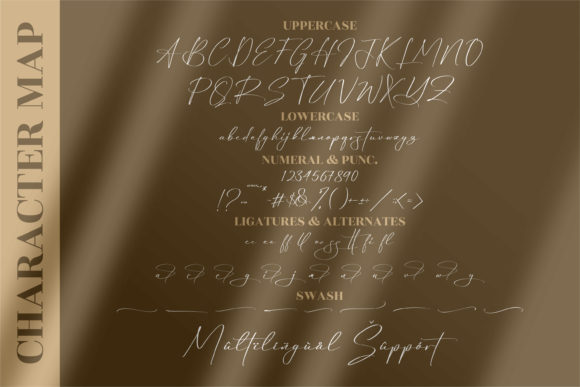 CHARACTER MAP
UPPERCASE
ABCDEFGHIJKLMNO
PQRSTUVWXYZ
LOWERCASE
abcdefghijklmnopqrstuvwxyz
NUMERAL & PUNC.
1234567890
!? #$&%()
LIGATURES & ALTERNATES
SWASH
Múltílíngùàl Šúppórt